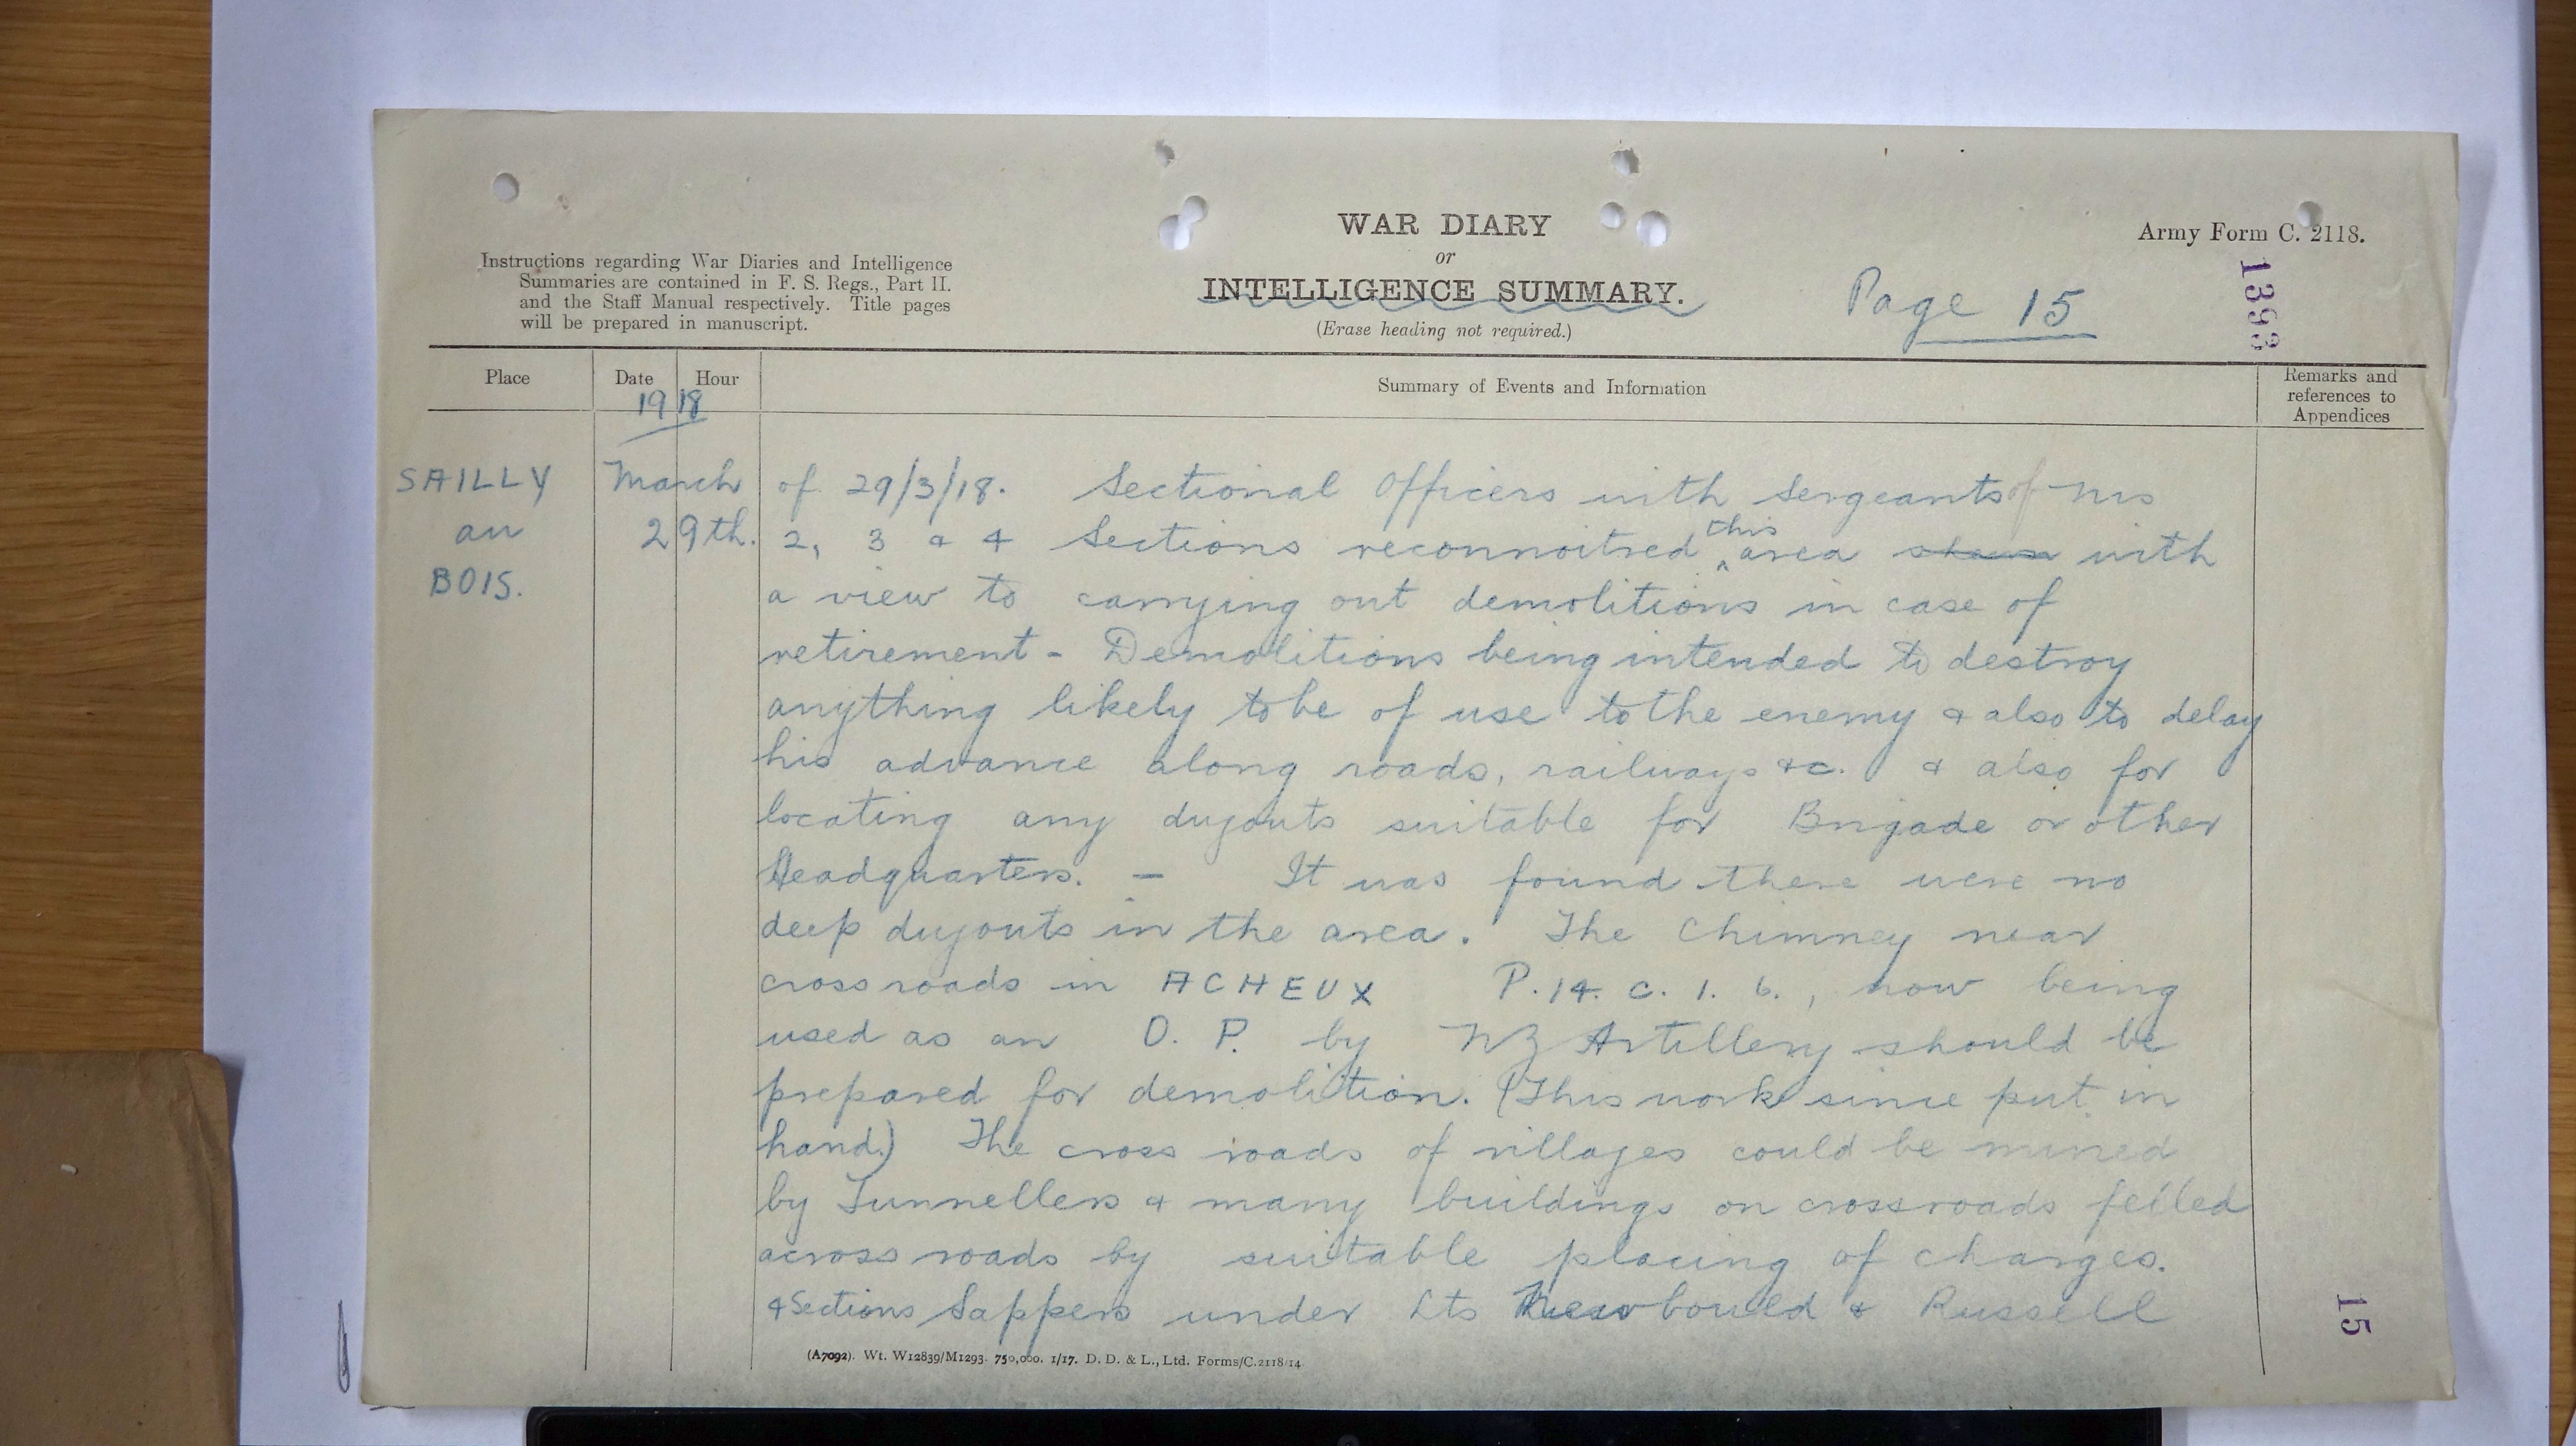 WAR DIARY
or
INTELLIGENCE SUMMARY.
(Erase heading not required.)
Instructions regarding War Diaries and Intelligence
Summaries are contained in F. S. Regs., Part II.
and the Staff Manual respectively. Title pages
will be prepared in manuscript.
Army Form C. 2118.
Page 15
1393
Place
Date
Hour
Summary of Events and Information
Remarks and
references to
Appendices
1918
SAILLY
au
BOIS.
March
29th.
of 29/3/18. Sectional Officers with Sergeants of Nos
2, 3 & 4 Sections reconnoitred this area with
a view to carrying out demolitions in case of
retirement - Demolitions being intended to destroy
anything likely to be of use to the enemy & also to delay
his advance along roads, railways &c. & also for
locating any dugouts suitable for Brigade or other
Headquarters. - It was found there were no
deep dugouts in the area. The Chimney near
cross roads in ACHEUX P.14. c. 1. 6., now being
used as an O. P. by NZ Artillery should be
prepared for demolition. (This work since put in
hand.) The cross roads of villages could be mined
by Tunnellers & many buildings on crossroads felled
across roads by suitable placing of charges.
4 Sections Sappers under Lts Newbould & Russell
(A7092). Wt. W12839/M1293. 750,000. 1/17. D. D. & L., Ltd. Forms/C.2118/14
15